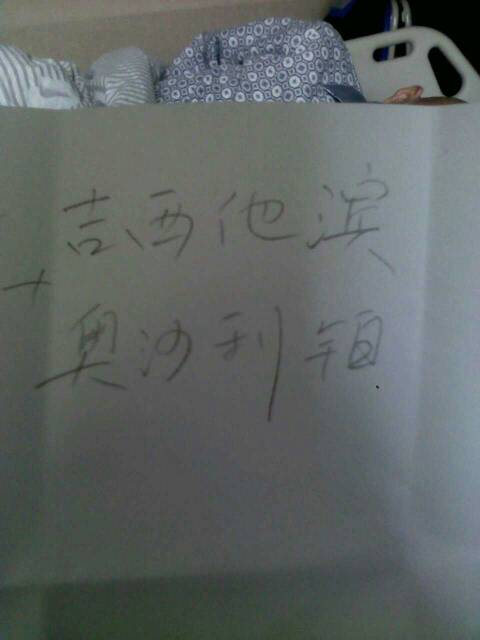 吉西他滨
+
奥沙利铂